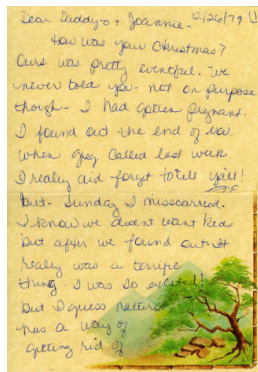 Dear Daddy-o + Joannie - 12/26/79 (1
How was your Christmas?
Ours was pretty eventful. We
never told you - not on purpose
though - I had gotten pregnant.
I found out the end of Nov.
When Greg called last week
I really did forget to tell you!
But - Sunday I misscarried.
I know we doesnt want kids
but after we found out - it
realy was a terrific
thing. I was so excited!
But I guess nature
has a way of
getting rid of